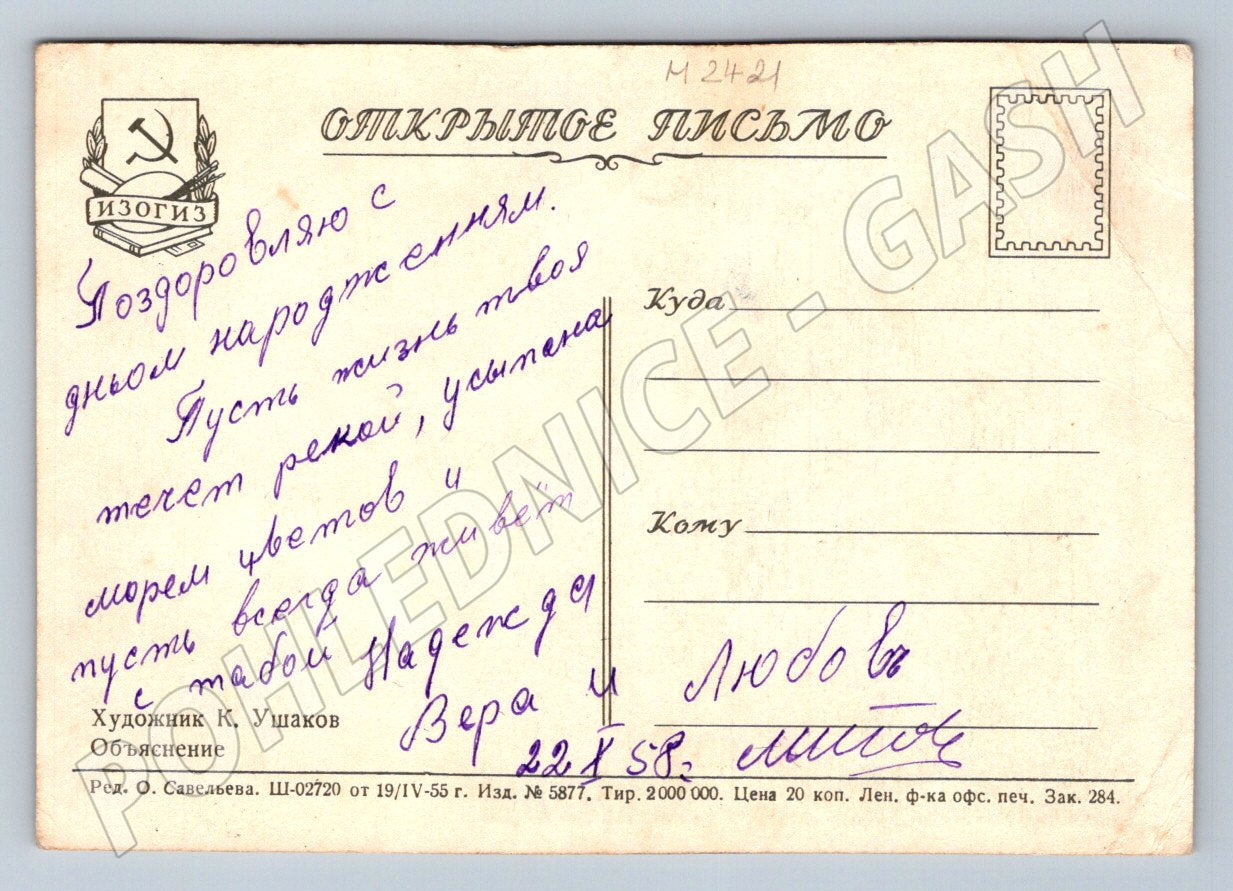 М 2421
ОТКРЫТОЕ ПИСЬМО
ИЗОГИЗ
Поздоровляю с
дньом народженням.
Пусть жизнь твоя
течет рекой, усыпана
морем цветов и
пусть всегда живёт
с табой Надежда
Вера и Любовь
22 X 58г
Куда
Кому
Художник К. Ушаков
Объяснение
Ред. О. Савельева. Ш-02720 от 19/IV-55 г. Изд. № 5877. Тир. 2 000 000. Цена 20 коп. Лен. ф-ка офс. печ. Зак. 284.
POHLEDNICE - GASH